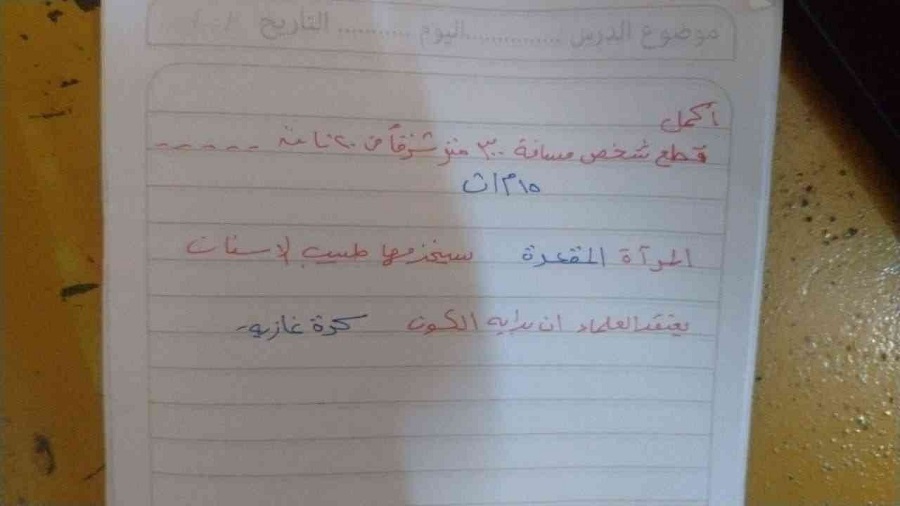 موضوع الدرس .............. اليوم ........... التاريخ / /
أكمل
قطع شخص مسافة ٣٠٠ متر شرقاً في ٢٠ ثانية -----
١٥م/ث
المرآة المقعرة يستخدمها طبيب لاسنان
يعتقد العلماء ان بدايه الكون كرة غازيه